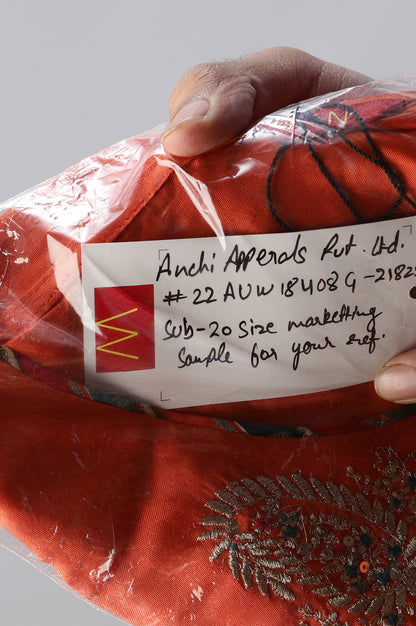 Anchi Apperals Pvt. Ltd.
# 22 AUW 18408 G - 2182
Sub-20 size marketting
sample for your ref.
W